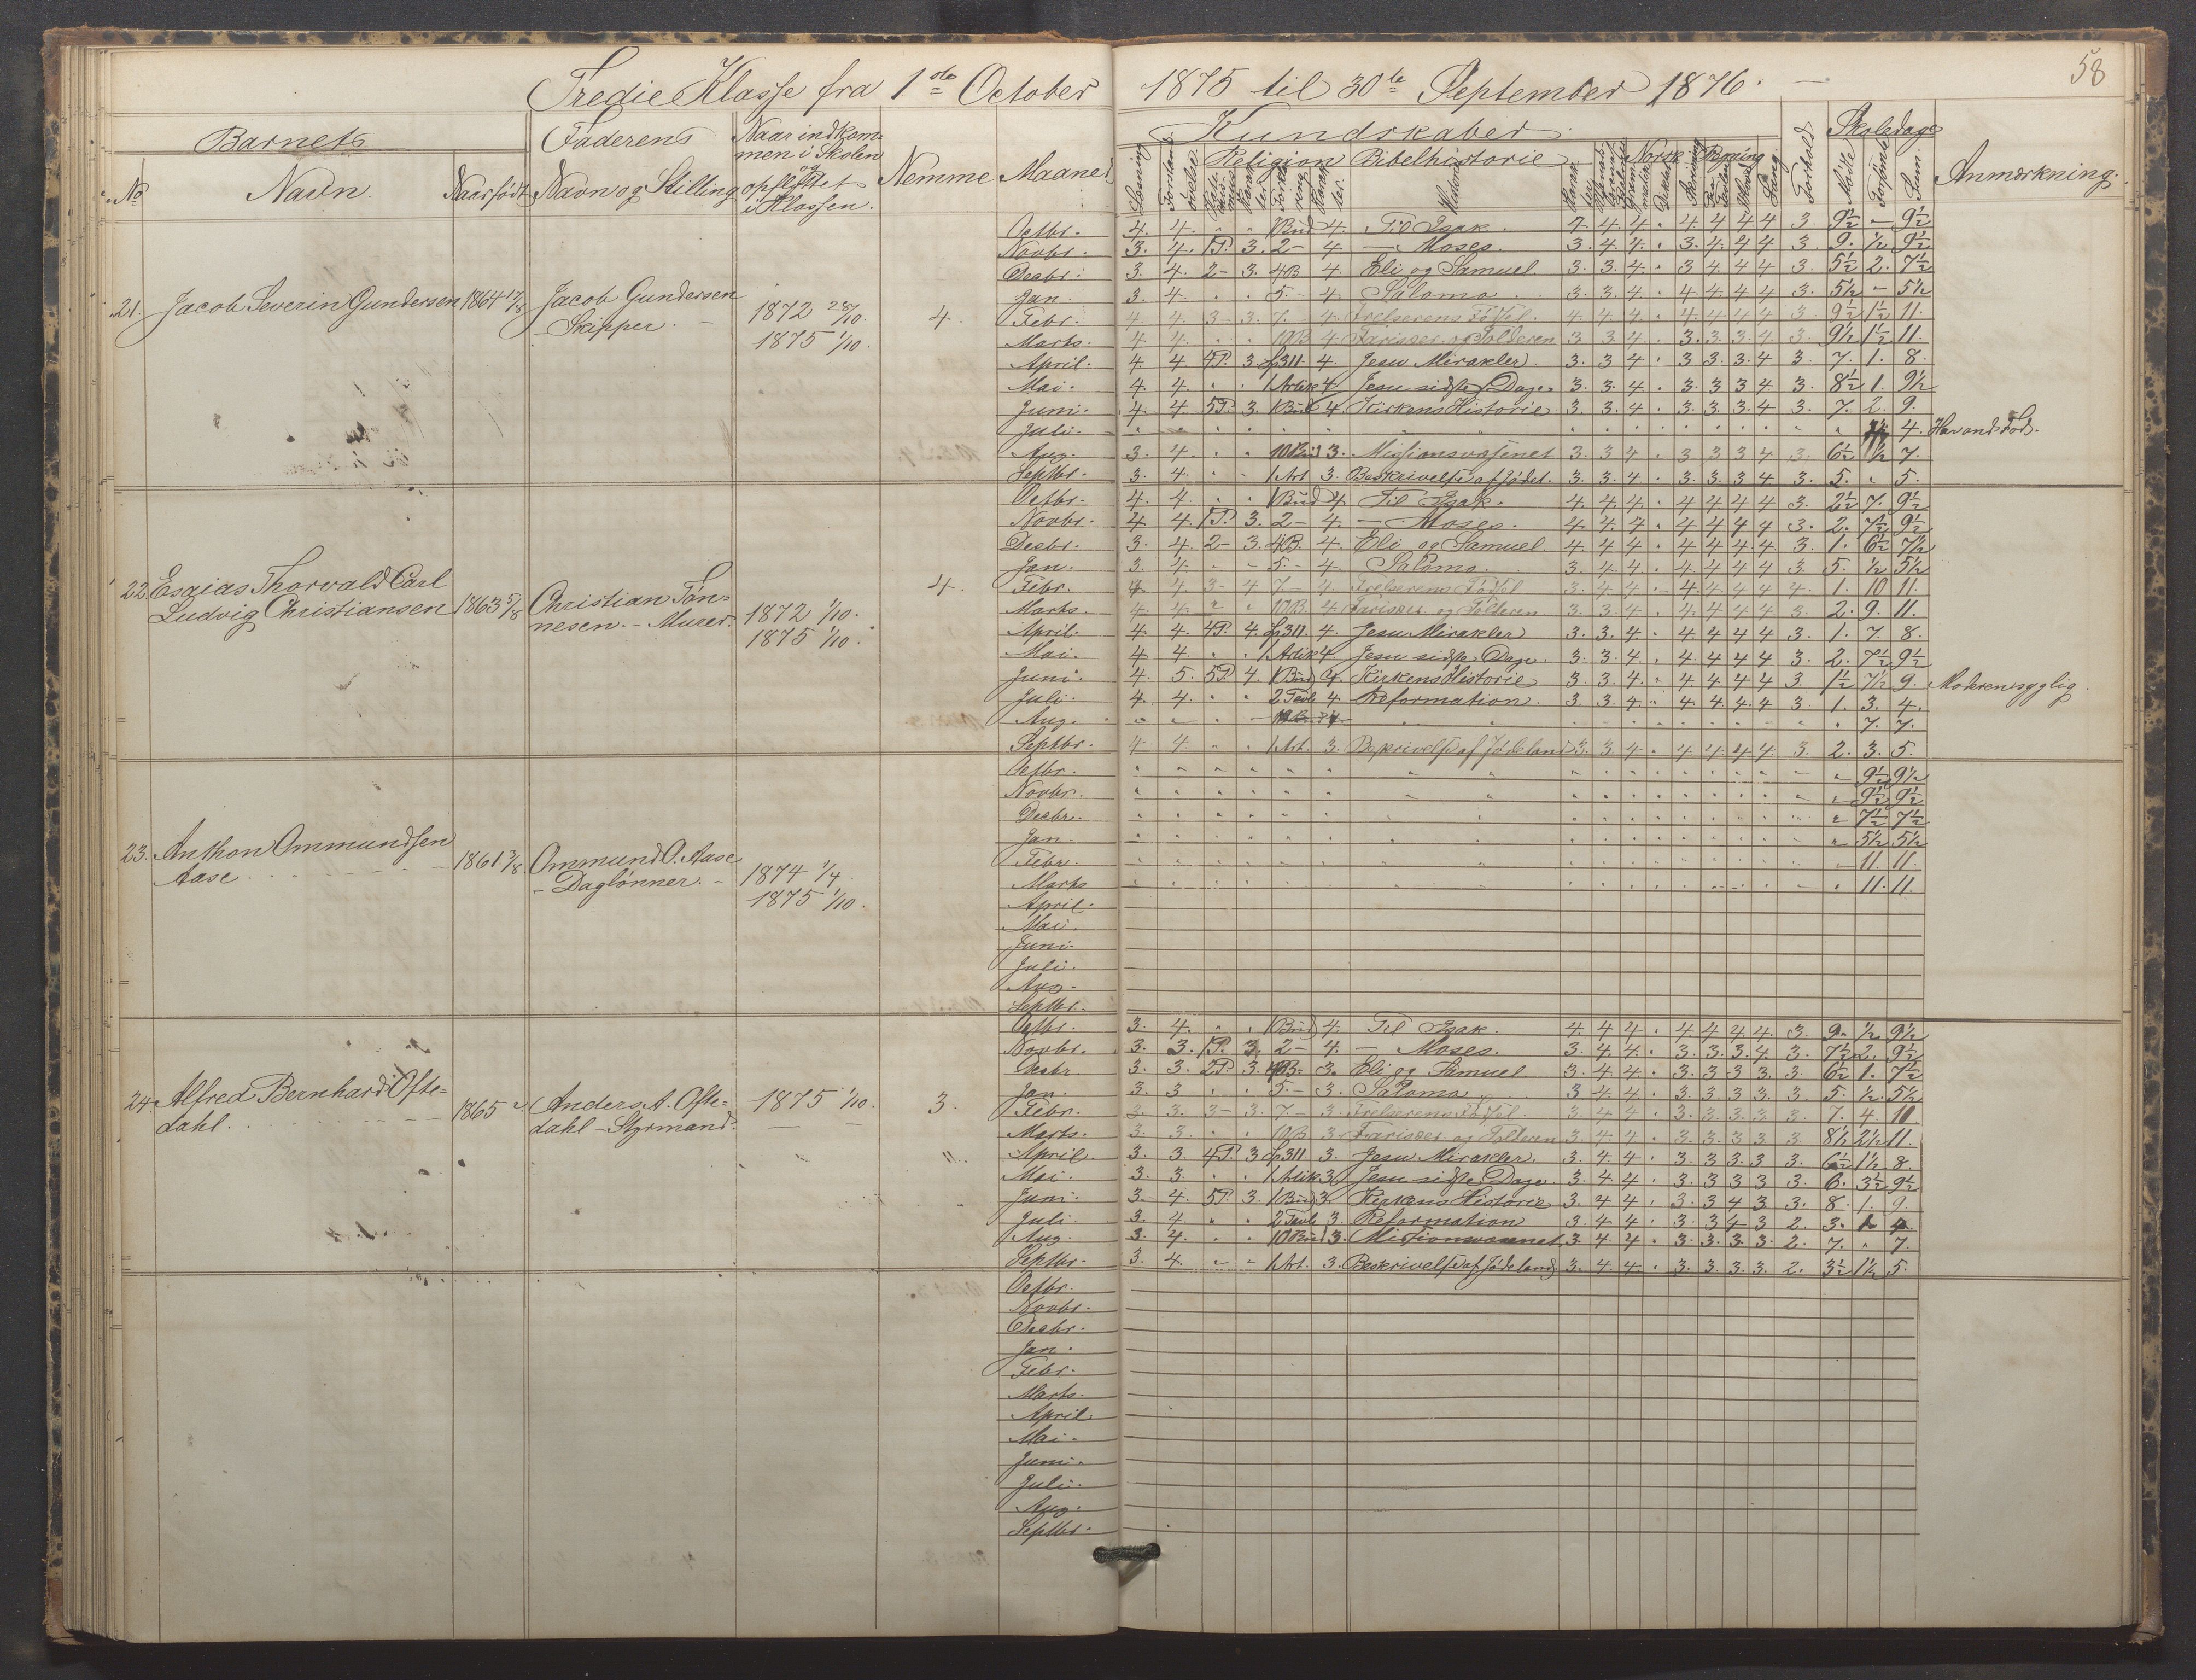 58
Tredie Klasse fra 1ste October 1875 til 30te September 1876.
Barnets Faderens Naar indkom-
men i Skolen
og
opflyttet
i Klassen.
No Navn. Naar født Navn og Stilling Nemme Maaned
Kundskaber. Forhold Skoledage Anmærkning.
Læsning Religion Bibelhistorie Norsk Regning Sang. Mødte Forsømte Sum.
21. Jacob Severin Gundersen 1864 17/8 Jacob Gundersen
- Skipper. -
1872 28/10
1875 1/10.
4.
Octbr. 4. 4. " " 1 Bud 4. Til Isak. 4. 4. 4. " 4 4 4 4 3 9½ - 9½
Novbr. 3. 4. 1P. 3. 2- 4 - Moses. 3. 4. 4. " 3. 4. 4 4 3. 9. ½ 9½
Decbr. 3. 4. 2- 3. 4B 4. Eli og Samuel 3. 3. 4. " 3 4. 4 4 3. 5½ 2. 7½
Jan. 3. 4. " " 5.- 4. Salomo. 3. 3. 4. " 4. 4. 4 4 3. 5½ - 5½
Febr. 4 4. 3- 3. 7.- 4. Frelserens Fødsel. 4. 4. 4. " 4. 4. 4 4 3. 9½ 1½ 11.
Marts. 4 4. " " 10B 4 Farisæer og Tolderen 3 3 4. " 3. 3. 3 4 3. 9½ 1½ 11.
April. 4 4 4P. 3 Sp311 4 Jesu Mirakler 3. 3 4 " 3 3. 3. 4 3. 7. 1. 8.
Mai. 4 4. " " 1 Artik 4 Jesu sidste Dage. 3. 3. 4. " 3. 3 3 4 3. 8½ 1. 9½
Juni. 4. 4 5P. 3. 1 Bud 4 Kirkens Historie 3. 3. 4 " 3. 3. 3. 4 3. 7. 2. 9.
Juli. 4. Har ondt Fod.
Aug. 3. 4. " " 10 Bud 3. Missionsvæsenet 3. 3 4 " 3 3 3 4 3. 6½ ½ 7.
Septbr. 3. 4. " " 1 Art 3. Beskrivelse af Jødel. 3. 3 4 " 3. 3. 3 4 3. 5. " 5.
22. Esaias Thorvald Carl
Ludvig Christiansen 1863 5/8 Christian Tøn-
nesen. - Murer.
1872 1/10.
1875 1/10.
4.
Octbr. 4. 4. " " 1 Bud 4. Til Isak. 4. 4. 4. " 4 4 4 4 3. 2½ 7. 9½
Novbr. 4 4. 1P. 3. 2- 4. - Moses. 4. 4. 4. " 4 4 4 4 3. 2. 7½ 9½
Decbr. 3. 4. 2- 3. 4B. 4. Eli og Samuel. 4. 4 4 " 4 4 4 4 3. 1. 6½ 7½
Jan. 3. 4 " " 5.- 4 Salomo. 3. 4. 4. " 4. 4 4 4 3 5. ½ 5½
Febr. 4. 4 3- 4 7- 4. Frelserens Fødsel 3. 4 4 - 4. 4 4 4 4. 1. 10 11.
Marts. 4. 4. " " 10B. 4 Farisæer og Tolderen 3. 3. 4 " 4 4 4 4 3. 2. 9. 11.
April. 4 4. 4P. 4. Sp311. 4. Jesu Mirakler 3. 3. 4 " 4. 4 4 4 3. 1. 7. 8.
Mai. 4 4. " " 1 Artik 4 Jesu sidste Dage. 3. 3. 4. " 4. 4 4 4 3. 2. 7½ 9½
Juni. 4. 5. 5P. 4. 1 Bud 4. Kirkens Historie 3. 3. 4. " 4 4 4 4 3. 1½ 7½ 9. Moderen syglig.
Juli. 4. 4. " " 2 Tavle 4 Reformation. 3. 3. 4 " 4. 4. 4. 4 3. 1. 3. 4.
Aug. 7. 7.
Septbr. 4 4. " " 1 Art. 3. Beskrivelse af Jødeland 3. 3. 4 " 4 4. 4 4. 3. 2. 3. 5.
23. Anthon Ommundsen
Aase 1861 3/8. Ommund O. Aase
- Daglønner. -
1874 1/4
1875 1/10.
Octbr. 9½ 9½
Novbr. 9½ 9½
Decbr. 7½ 7½
Jan. 5½ 5½
Febr. 11. 11.
Marts 11. 11.
April.
Mai.
Juni.
Juli.
Aug.
Septbr.
24. Alfred Bernhard Ofte-
dahl. 1865 Anders A. Ofte-
dahl - Styrmand.
1875 1/10.
3.
Octbr. 3. 4. " " 1 Bud 4. Til Isak. 4. 4 4 " 4. 4 4 4. 3. 9. ½ 9½
Novbr. 3. 3. 1P. 3. 2- 4. - Moses. 3. 4. 4. " 3. 3. 3. 4 3. 7½ 2. 9½
Decbr. 3. 3. 2P 3. 4B- 3. Eli og Samuel 3. 4 4. " 3. 3 3 3. 3. 6½ 1. 7½
Jan. 3. 3 " " 5.- 3. Salomo. 3 4 4 " 3 3 3 3. 3. 5. ½. 5½
Febr. 3. 3. 3- 3. 7- 3. Frelserens Fødsel. 3. 4 4 " 3. 3. 3 3 3. 7. 4. 11
Marts. 3. 3. " " 10B 3 Farisæer og Tolderen 3. 4 4 " 3. 3. 3 3 3. 8½ 2½ 11.
April. 3. 3 4P. 3 Sp311 3. Jesu Mirakler. 3. 4 4 " 3. 3. 3. 3 3. 6½ 1½ 8.
Mai. 3. 3. " " 1 Artik 3 Jesu sidste Dage. 3. 4. 4 " 3. 3 3 3 3. 6. 3½ 9½
Juni. 3. 4. 5P. 3. 1 Bud 3. Kirkens Historie 3. 4 4 " 3. 3 4 3. 3. 8. 1. 9.
Juli. 3. 4. " " 2 Tavle 3. Reformation 3. 4 4 " 3. 3 4 3 2. 3. 1 4.
Aug. 3. 4. " " 10 Bud 3. Missionsvæsenet 3. 4 4 " 3. 3. 3. 3 2. 7. " 7.
Septbr. 3. 4. " " 1 Art. 3. Beskrivelse af Jødeland 3. 4 4. " 3. 3. 3. 3. 2. 3½ 1½ 5.
Octbr.
Novbr.
Decbr.
Jan.
Febr.
Marts.
April.
Mai.
Juni.
Juli.
Aug.
Septbr.